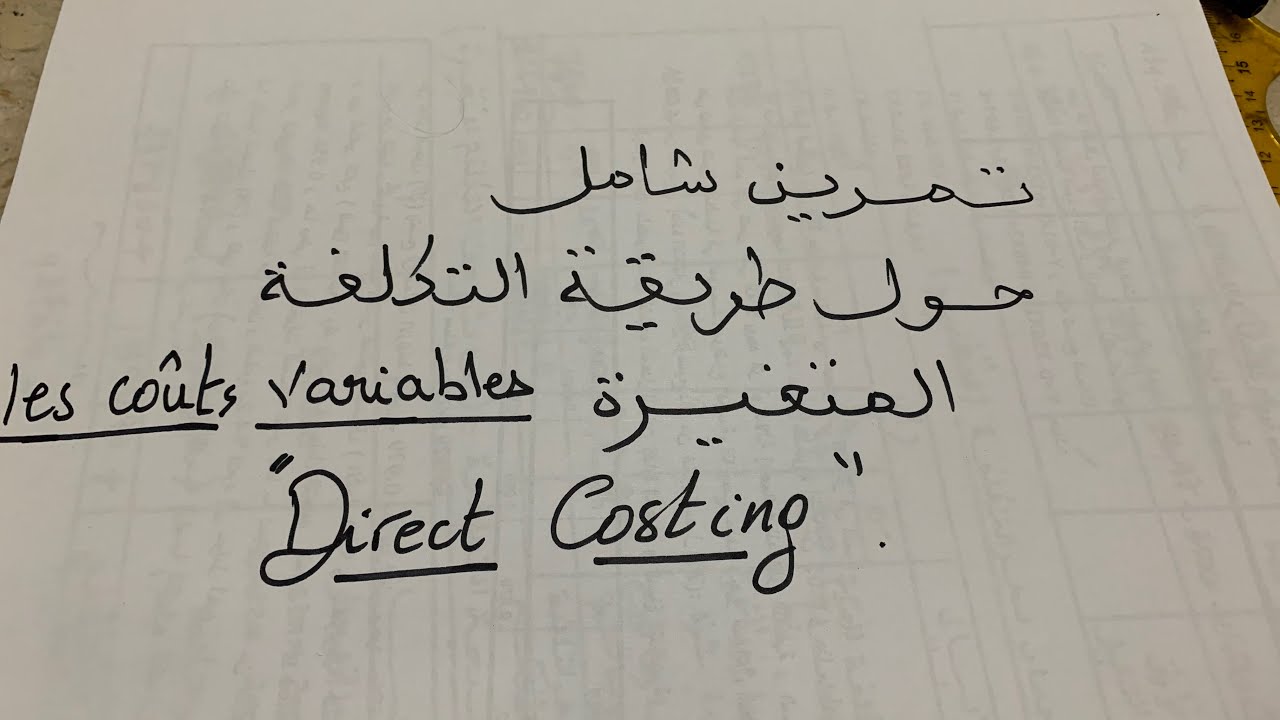 تمرين شامل
حول طريقة التكلفة
المتغيرة les coûts variables
"Direct Costing".